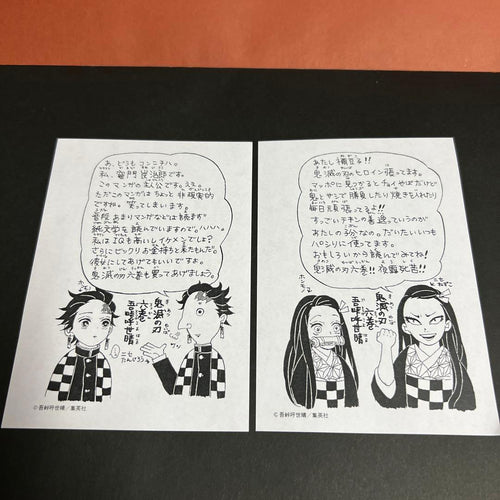 あ、どうもコンニチハ。
私、竈門炭治郎です。
このマンガの主人公です。ええ。
ただこのマンガはちょっと非現実的
ですね。笑ってしまいます。
普段あまりマンガなどは読まず
純文学を読んでいますので。ハハハ。
私はIQも高いしイケメンでしょ?
さらにビックリお金持ちと来たもんだ。
彼女にしてあげてもいいですよ。
鬼滅の刃六巻も買ってあげましょう。
ホンモノ
鬼滅の刃
六巻
吾峠呼世晴
ニセ
たんじろう
©吾峠呼世晴/集英社
あたし禰豆子!!
鬼滅の刃のヒロイン張ってます。
マッポに見つかるとヤバイやばだけど
鬼としゃにんで勝負したり焼きを入れたり
毎日頑張ってるよ!!
すっごいテキンの善逸っていうのが
あたしの子分なの。だいたいいつも
パシリに使ってます。
おもしろいから読んでみてね!
鬼滅の刃六巻!!夜露死苦!!
ホンモノ
鬼滅の刃
六巻
吾峠呼世晴
ニセ
ねずこ
©吾峠呼世晴/集英社